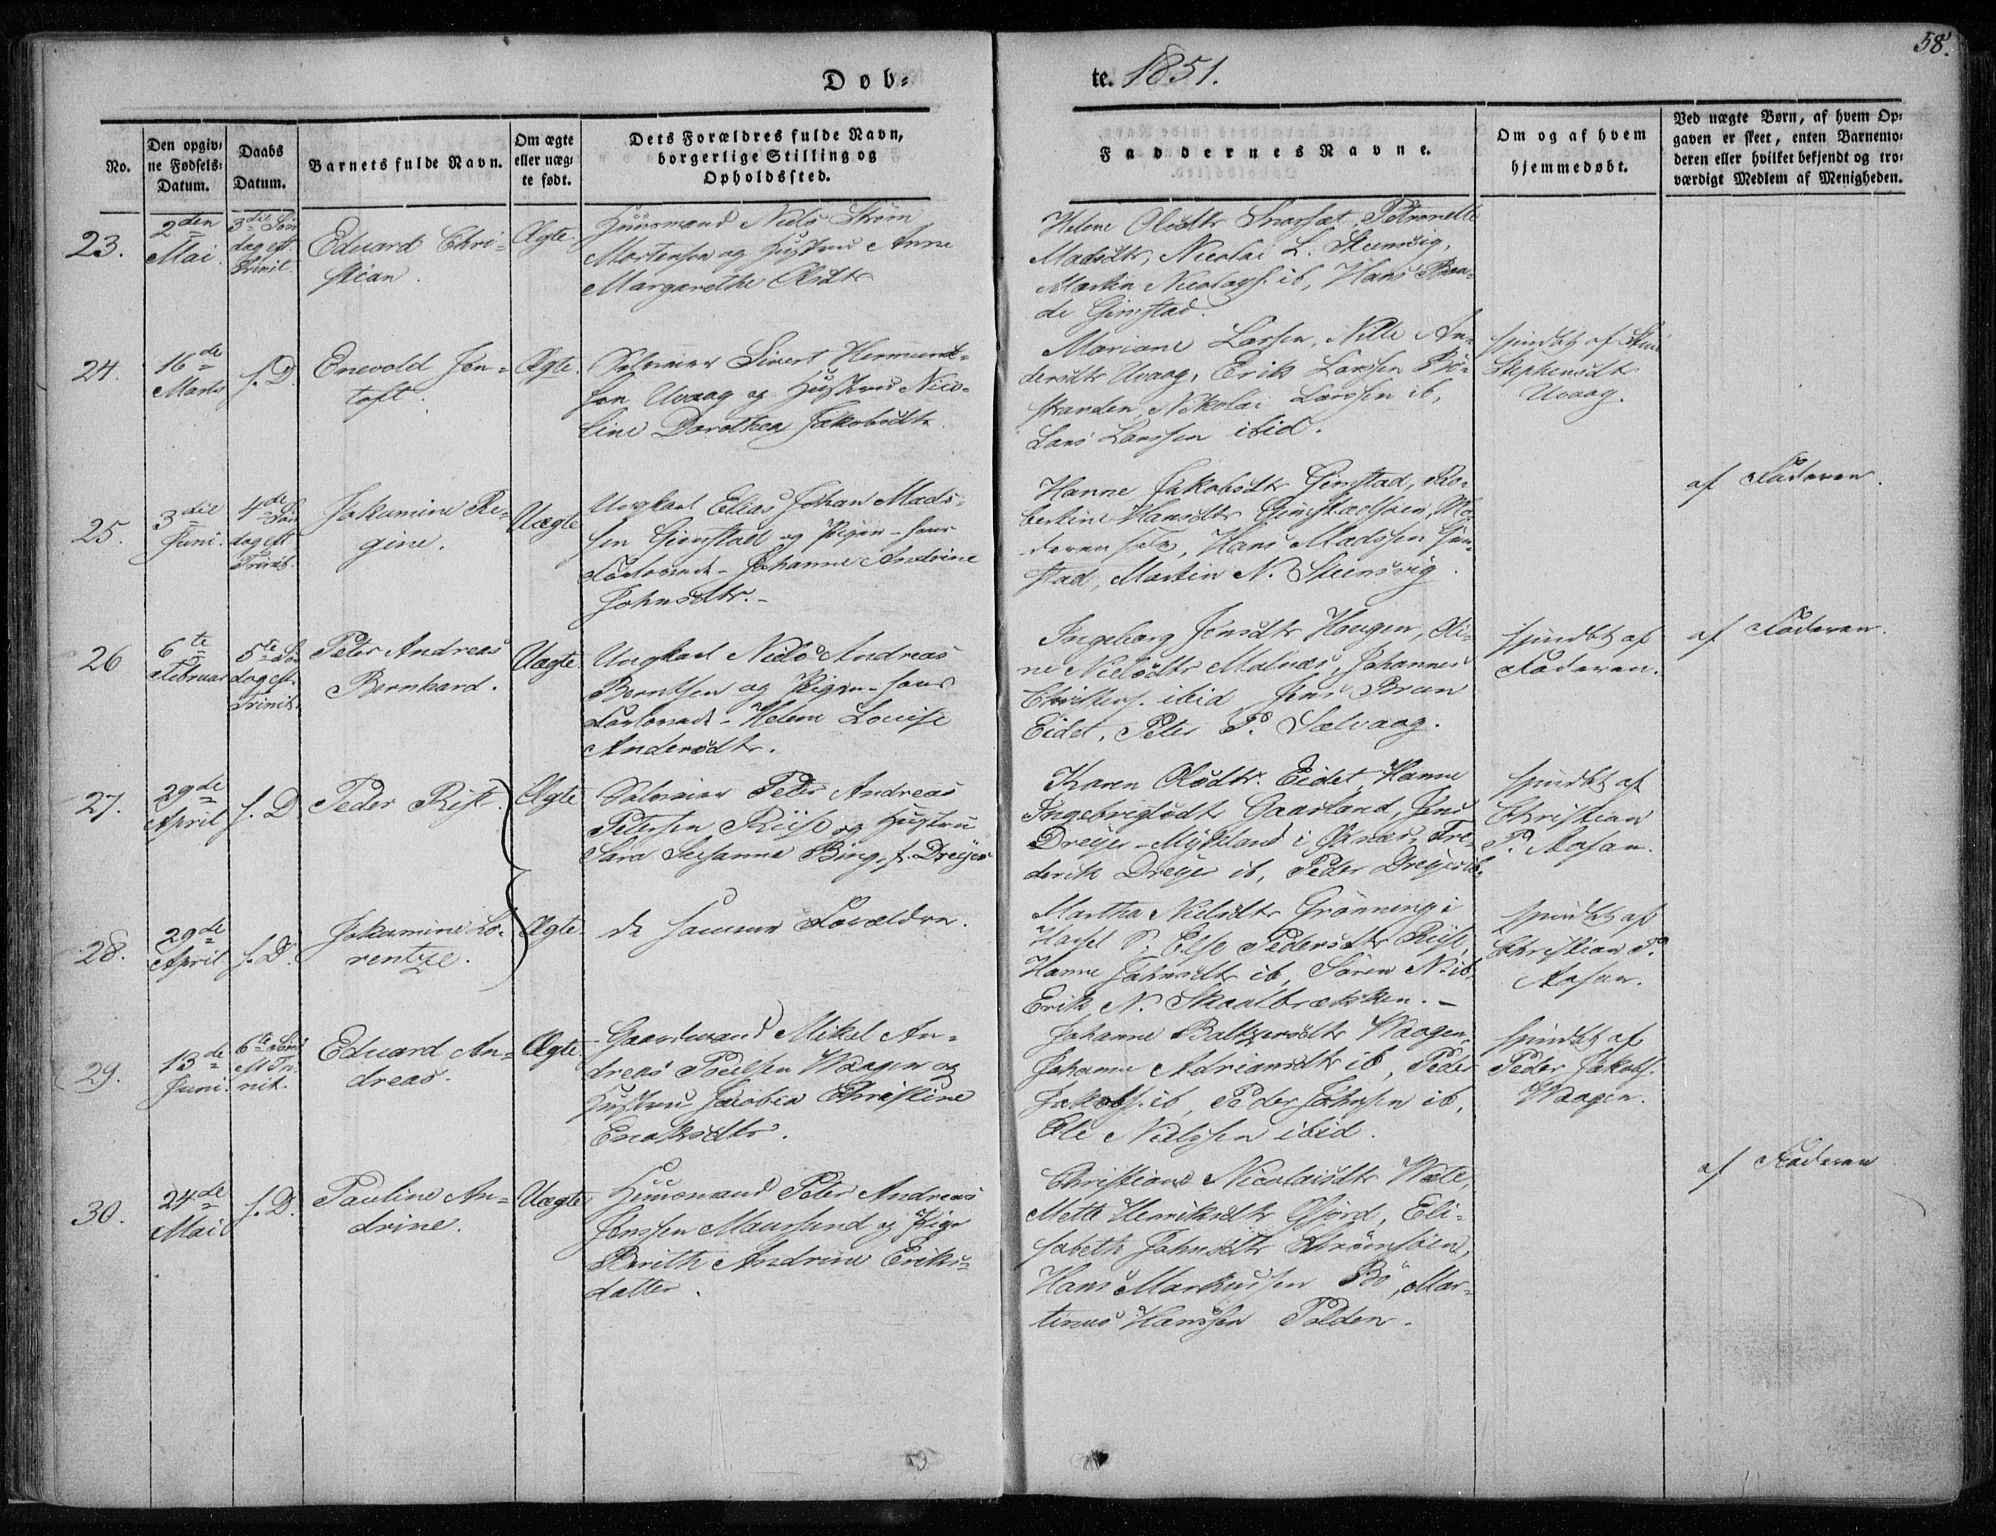 58.
Døb=
te. 1851.
No.
Den opgiv=
ne Fødsels=
Datum.
Daabs
Datum.
Barnets fulde Navn.
Om ægte
eller uæg=
te født.
Dets Forældres fulde Navn,
borgerlige Stilling og
Opholdssted.
Faddernes Navne.
Om og af hvem
hjemmedøbt.
Ved uægte Børn, af hvem Op=
gaven er skeet, enten Barnemo=
deren eller hvilket bekjendt og tro=
værdigt Medlem af Menigheden.
23.
2den
Mai
3die Søn
dag eft
Trinit.
Eduard Chri=
stian.
Ægte.
Huusmand Niels Strøm
Mortensen og Hustrue Anne
Margarethe Olsdtr
Helene Olsdtr Snarset, Petronelle
Madsdtr, Nicolai L. Steensvig,
Martin Nicolays. ib, Hans Braa=
de Gimstad.
24.
16de
Marts
s. D.
Enevold Jen=
toft.
Ægte.
Selveier Sivert Hermund=
sen Uvaag og Hustrue Nico=
line Dorothea Jakobsdtr.
Mariane Larsen, Nille An=
dersdtr Uvaag, Erik Larssen Bö=
stranden, Nikolai Larssen ib,
Lars Larssen ibid.
hjemdbt af
Stephensdtr
Uvaag.
25.
3die
Juni.
4de Søn
dag eft
Trinit.
Jakumine Re=
gine.
Uægte
Ungkarl Elias Johan Mads=
sen Gimstad og Pigen
Johanne Andrine
Johnsdtr.
Hanne Jakobsdtr Gimstad, Ro=
bertine Hansdtr Gimstad, Mo=
deren selv, Hans Madssen Gim=
stad, Martin N. Steensvig.
af Faderen.
26
6te
Februar
5te Søn
dag eft.
Trinit.
Peter Andreas
Bernhard.
Uægte.
Ungkarl Niels Andreas
Berntsen og Pigen
Helene Louise
Andersdtr.
Ingeborg Jensdtr Hougen, Oli=
ne Nielsdtr Malnæs, Johannes
Christens. ibid Jens Bruun
Eidet, Peter P. Sælvaag.
hjemdbt af
Faderen.
af Faderen.
27.
29de
April
s. D.
Peder Rist.
Ægte
Selveier Peder Andreas
Petersen Riise og Hustru
Sara Susanna Bing, f. Dreyer
Karen Olsdtr. Eidet, Hanne
Ingebrigtsdtr Gaarland, Jens
Dreyer Mykland i Øxnæs, Fre=
derik Dreyer ib, Peder Dreyer ib.
hjemdbt af
Christian
P. Aasan.
28.
29de
April
s. D.
Jakumine Lo=
rentze.
Ægte.
de samme Forældre.
Martha Nielsdtr Grønning i
Hassel P. Else Pedersdtr Riise,
Hanne Johnsdtr ib, Søren N. ib
Erik N. Skaalbrækken.
hjemdbt af
Christian P.
Aasan.
29.
13de
Juni.
6te Sønd
eft Tri
nit.
Eduard An=
dreas.
Ægte.
Gaardmand Mikal An=
dreas Poulsen Waagen og
Hustru Jacobia Christine
Enoksdtr.
Johanna Baltzersdtr Waagen,
Johanna Adriansdtr ib, Peder
Jakobs. ib, Peder Johnsen ib,
Ole Nielssen ibid.
hjemdbt af
Peder Jakobs.
Waagen.
30.
24de
Mai
s. D.
Pauline An=
drine.
Uægte
Huusmand Peter Andreas
Jenssen Maursund og Pige
Berith Andrine Eriks=
datter.
Christiane Nicolaisdtr Wate,
Mette Henriksdtr Gjørd, Eli=
sabeth Johnsdtr Strømsöen,
Hans Markussen Bö, Mar=
tinus Hanssen Polden.
af Faderen